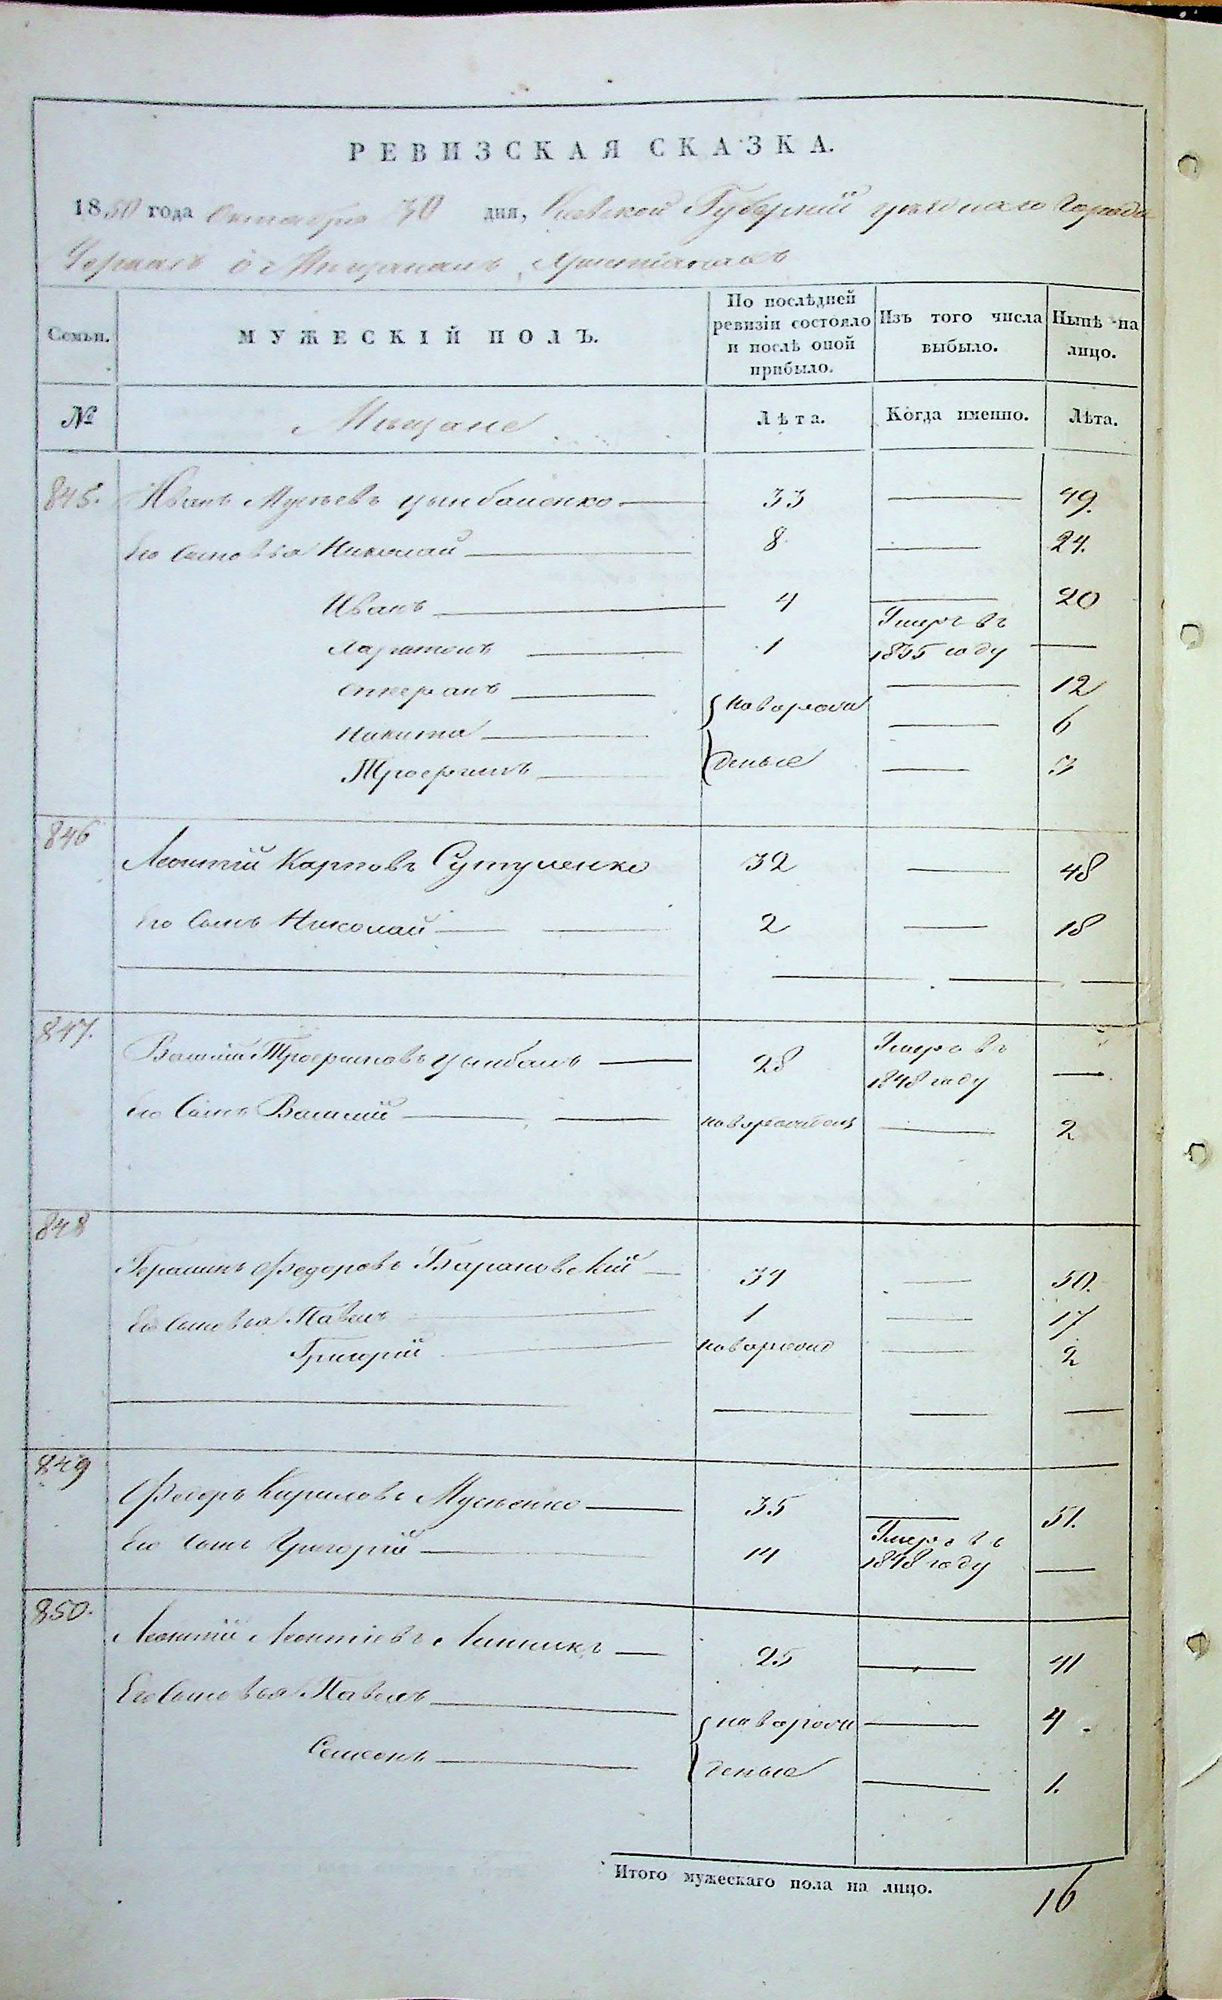 РЕВИЗСКАЯ СКАЗКА.
1850 года Октября 30 дня, Киевской Губернiи уѣзднаго города
Черкасъ о Мѣщанахъ, Христiанахъ
Семьи.
МУЖЕСКIЙ ПОЛЪ.
По послѣдней ревизiи состояло и послѣ оной прибыло.
Изъ того числа выбыло.
Нынѣ на лицо.
№ Мѣщане Лѣта. Когда именно. Лѣта.
845. Иванъ Мусѣевъ Цымбаленко 33 49.
Его сыновья Николай 8 24.
Иванъ 4 20
Харитонъ 1 Умеръ въ 1835 году
Стефанъ новорож 12
Никита 6
Трофимъ денные 3
846 Леонтiй Карповъ Сутуленко 32 48
Его сынъ Николай 2 18
847. Василiй Трофимовъ Цымбалъ 28 Умеръ въ 1848 году
Его сынъ Василiй новорожденъ 2
848 Герасимъ Федоровъ Барановскiй 34 50.
Его сыновья Павелъ 1 17
Григорiй новорожд 2
849 Федоръ Кириловъ Мусѣенко 35 51.
Его сынъ Григорiй 14 Умеръ въ 1848 году
850. Леонтiй Леонтiевъ Линникъ 25 41
Его сыновья Павелъ новорож 4
Семенъ денные 1.
Итого мужескаго пола на лицо. 16